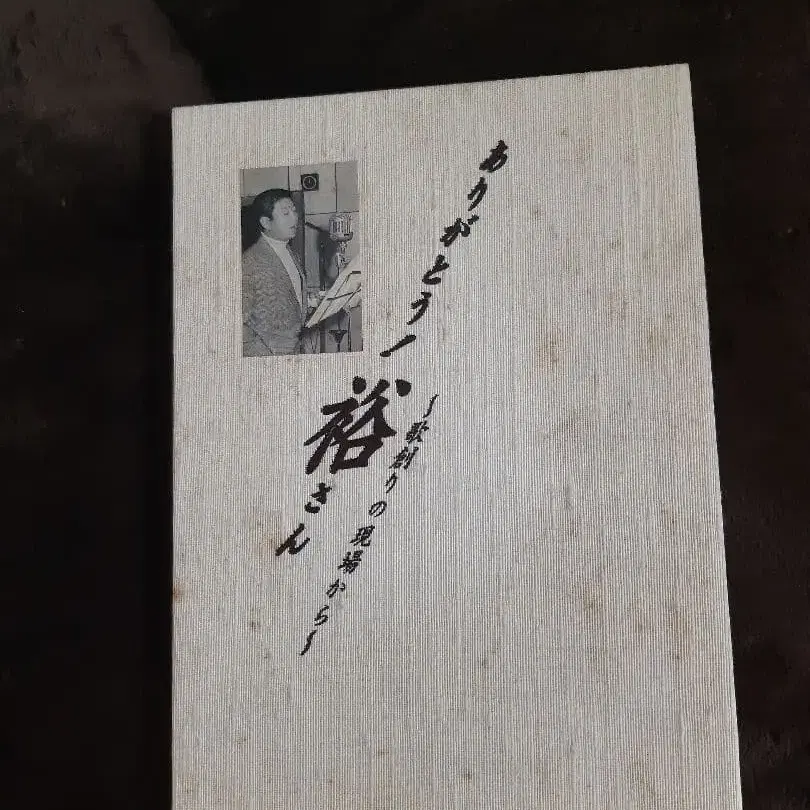 ありがとう!
裕さん
~歌創りの現場から~